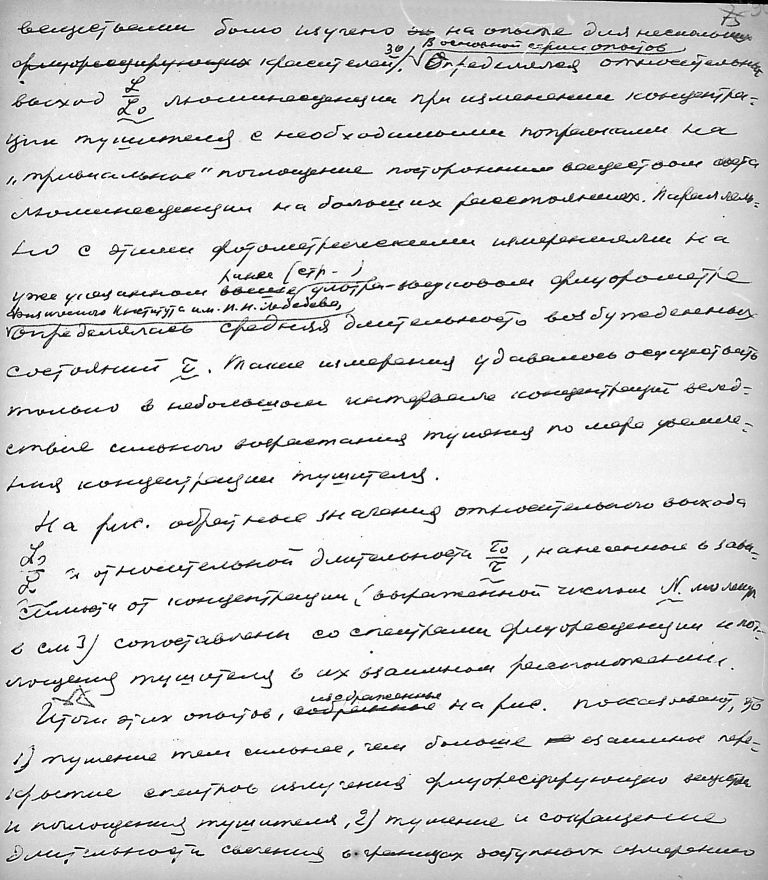 75
веществами было изучено на опыте для нескольких
флуоресцирующих красителей 36/. В основной серии опытов
Определялся относительный
выход L/L₀ люминесценции при изменении концентра-
ции тушителя с необходимыми поправками на
„тривиальное“ поглощение посторонним веществом света
люминесценции на больших расстояниях. Параллель-
но с этими фотометрическими измерениями на
ранее (стр - )
уже указанном выше ультра-звуковом флуорометре
Физического Института им. П.Н. Лебедева,
определялась средняя длительность возбужденных
состояний τ. Такие измерения удавалось осуществить
только в небольшом интервале концентраций вслед-
ствие сильного возрастания тушения по мере увеличе-
ния концентрации тушителя.
На рис. обратные значения относительного выхода
L₀/L и относительной длительности τ₀/τ, нанесенные в зави-
симости от концентрации (выраженной числом N молекул
в см3) сопоставлены со спектрами флуоресценции и пог-
лощения тушителя в их взаимном расположении.
Итоги этих опытов, собранные изображенные на рис. показывают, что
1) тушение тем сильнее, чем больше взаимное пере-
крытие спектров излучения флуоресцирующего вещества
и поглощения тушителя, 2) тушение и сокращение
длительности свечения в границах доступных измерению